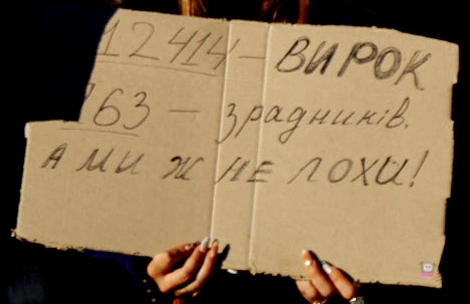 12414 – ВИРОК
263 – зрадників.
А МИ Ж НЕ ЛОХИ!